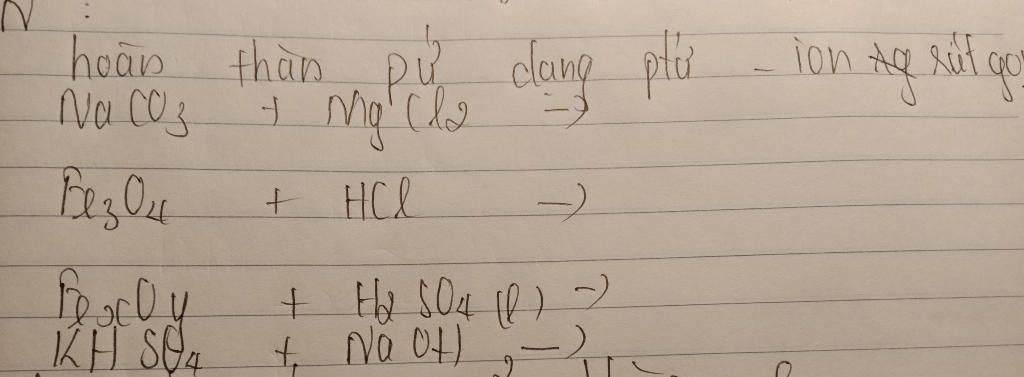 N :
hoàn thàn pứ dạng ptử - ion rút gọ
NaCO3 + MgCl2 =>
Fe3O4 + HCl ->
FexOy + H2SO4 (l) ->
KHSO4 + NaOH ->